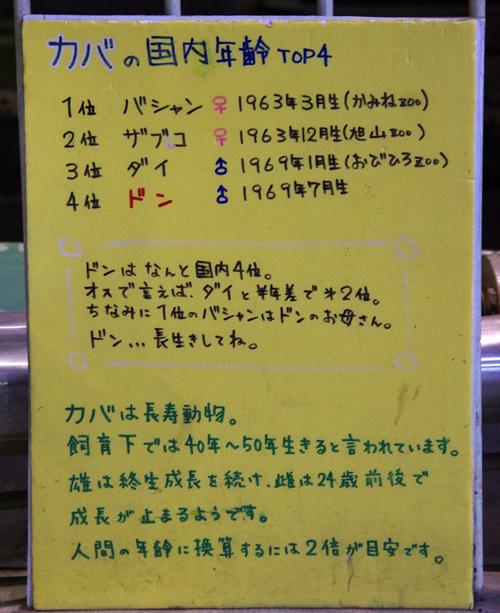 カバの国内年齢TOP4
1位 バシャン ♀ 1963年3月生(かみねzoo)
2位 ザブコ ♀ 1963年12月生(旭山zoo)
3位 ダイ ♂ 1969年1月生(おびひろzoo)
4位 ドン ♂ 1969年7月生
ドンはなんと国内4位。
オスで言えば、ダイと半年差で第2位。
ちなみに1位のバシャンはドンのお母さん。
ドン...長生きしてね。
カバは長寿動物。
飼育下では40年〜50年生きると言われています。
雄は終生成長を続け、雌は24歳前後で
成長が止まるようです。
人間の年齢に換算するには2倍が目安です。